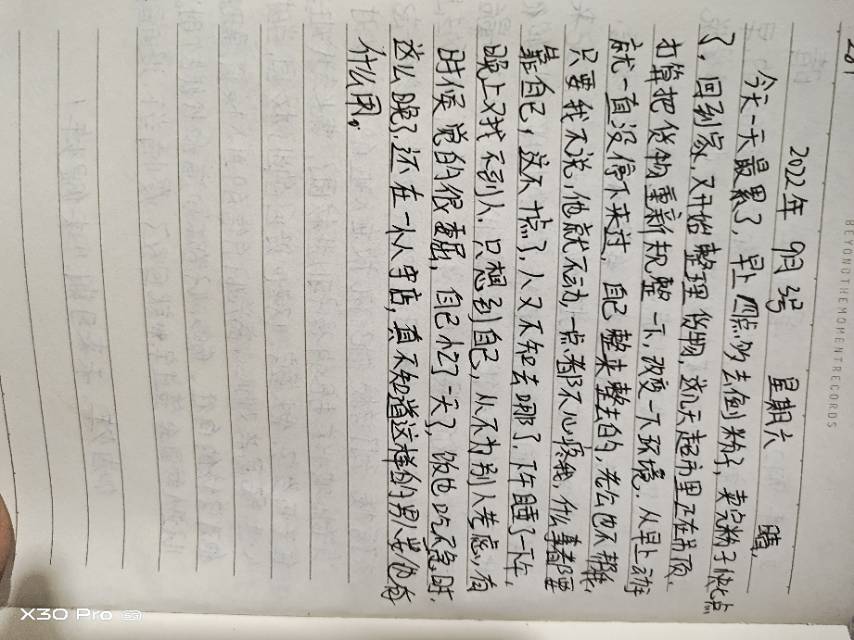 2022年 9月 3号 星期六 晴,
今天一天最累了,早上四点多去倒粉子,卖完粉子快七点
了,回到家,又开始整理货物,这几天超市里正在吊顶,
打算把货物重新规整一下,改变一下环境,从早上
就一直没停下来过,自己整来整去的,老公也不帮我,
只要我不说,他就不动,一点都不心疼我,什么事都要
靠自己,这不,人又不知去哪了,下午睡了一下午,
晚上又找不到人,只想到自己,从不为别人考虑,有
时候觉的很委屈,自己忙了一天了,饭也吃不急时,
这么晚了,还在一个人守店,真不知道这样的男人要他有
什么用。
BEYONDTHEMOMENTRECORDS
X30 Pro 5G